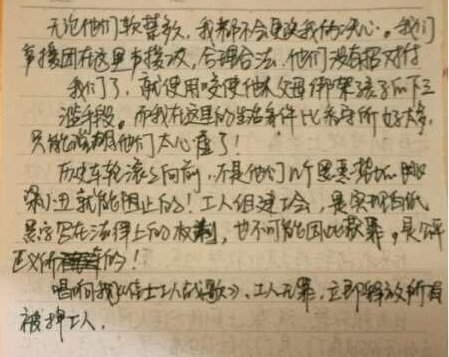 无论他们软禁多久，我都不会更改我的决心。我们
声援团在这里声援工友，合理合法，他们没有招对付
我们了，就使用唆使他人父母绑架孩子的下三
滥手段。而我在这里的生活条件比看守所好太多，
只能说明他们太心虚了！
历史车轮滚滚向前，不是他们几个黑恶势力
小丑就能阻止的！工人组建工会，是实实在在
写在法律上的权利，也不可能因此获罪。是
正义所
唱响我《佳士工人战歌》，工人无罪，立即释放所有
被押工人。